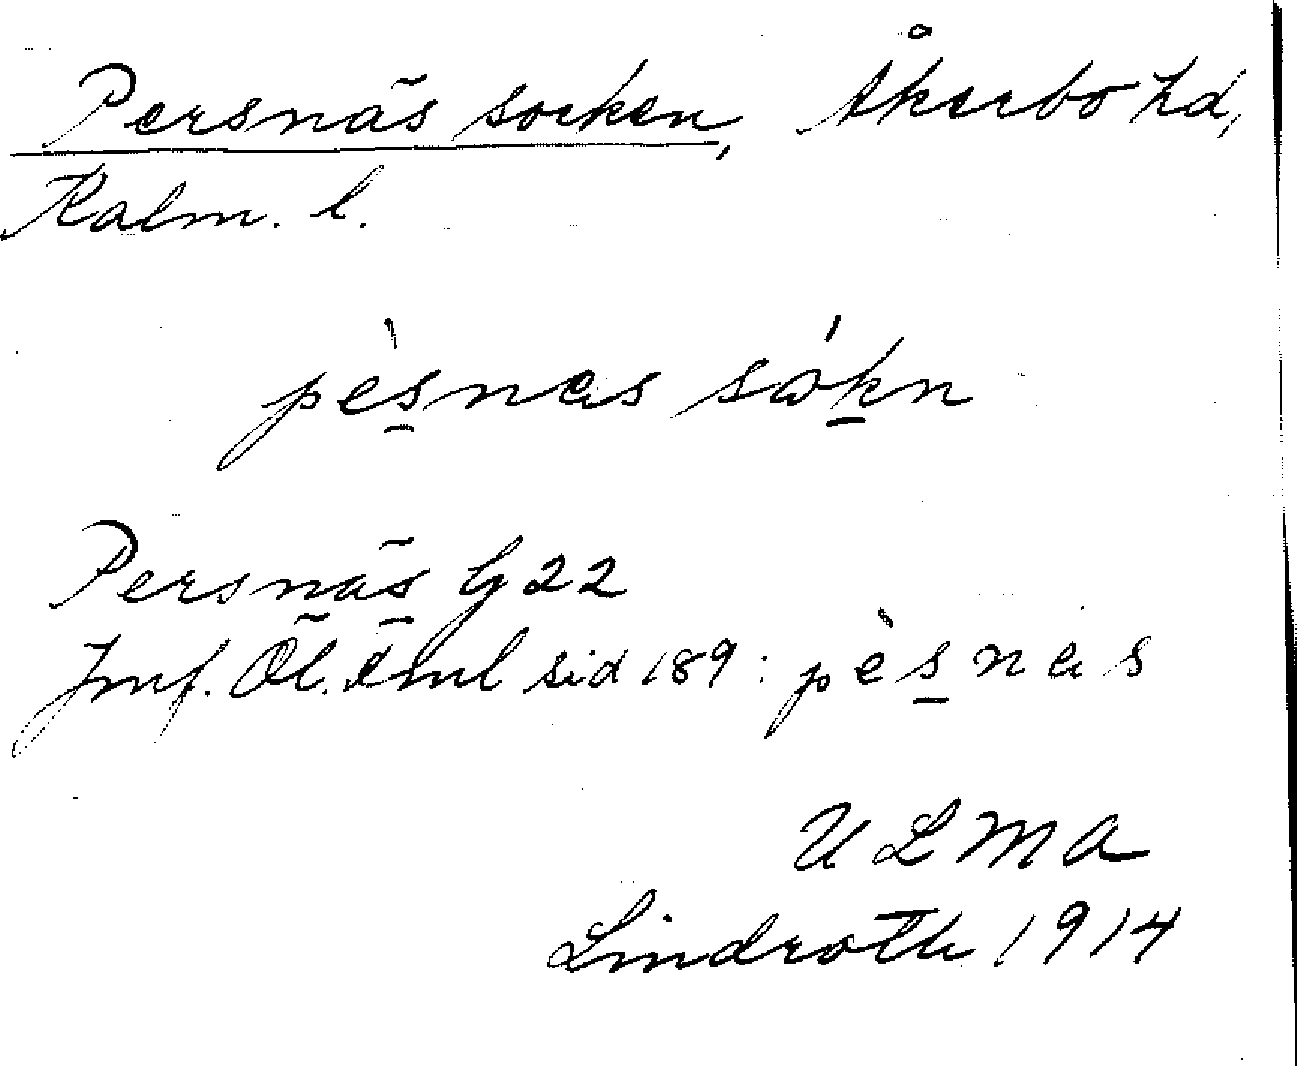 Persnäs socken, Åkerbo hd,
Kalm. l.
pès̱nas sók̲n
Persnäs G 22
Jmf. Öl. sid 189: pès̱nas
ULMA
Lindroth 1914